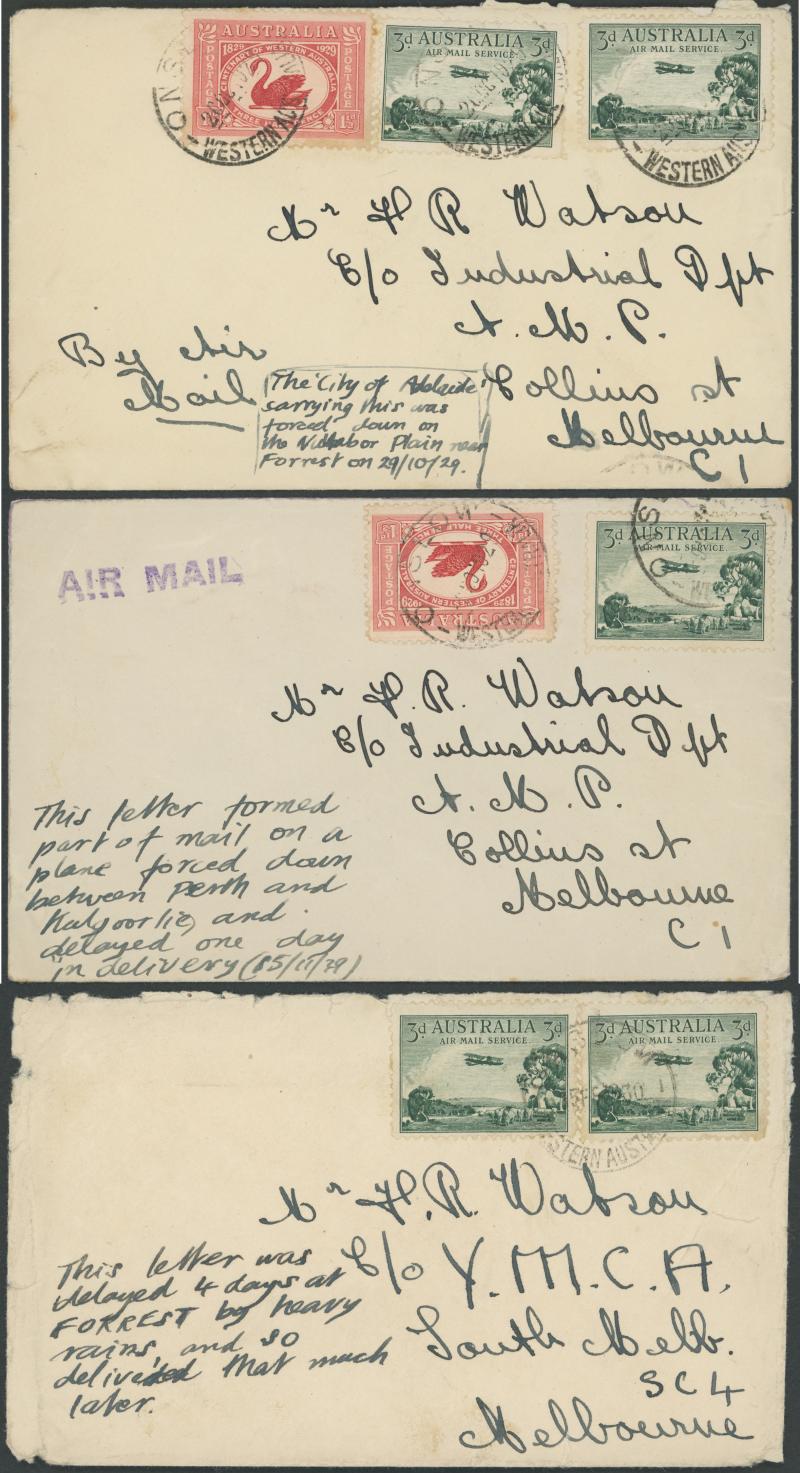 AUSTRALIA
1829 1929
CENTENARY OF WESTERN AUSTRALIA
POSTAGE POSTAGE
THREE HALFPENCE 1½d
3d AUSTRALIA 3d
AIR MAIL SERVICE
3d AUSTRALIA 3d
AIR MAIL SERVICE
WESTERN AUS
WESTERN AUS
WESTERN AUS
Mr H R Watson
C/o Industrial Dpt
A. M. P.
Collins st
Melbourne
C 1
By Air
Mail
The 'City of Adelaide'
carrying this was
forced down on
the Nullabor Plain near
Forrest on 29/10/29.
AIR MAIL
POSTAGE POSTAGE
THREE HALFPENCE
CENTENARY OF WESTERN AUSTRALIA
1829 1929
3d AUSTRALIA 3d
AIR MAIL SERVICE
Mr H. R. Watson
C/o Industrial Dpt
A. M. P.
Collins st
Melbourne
C 1
This letter formed
part of mail on a
plane forced down
between Perth and
Kalgoorlie, and
delayed one day
in delivery
3d AUSTRALIA 3d
AIR MAIL SERVICE
3d AUSTRALIA 3d
AIR MAIL SERVICE
Mr H. R. Watson
C/o Y. M. C. A.
South Melb.
SC 4
Melbourne
This letter was
delayed 4 days at
FORREST by heavy
rains, and so
delivered that much
later.